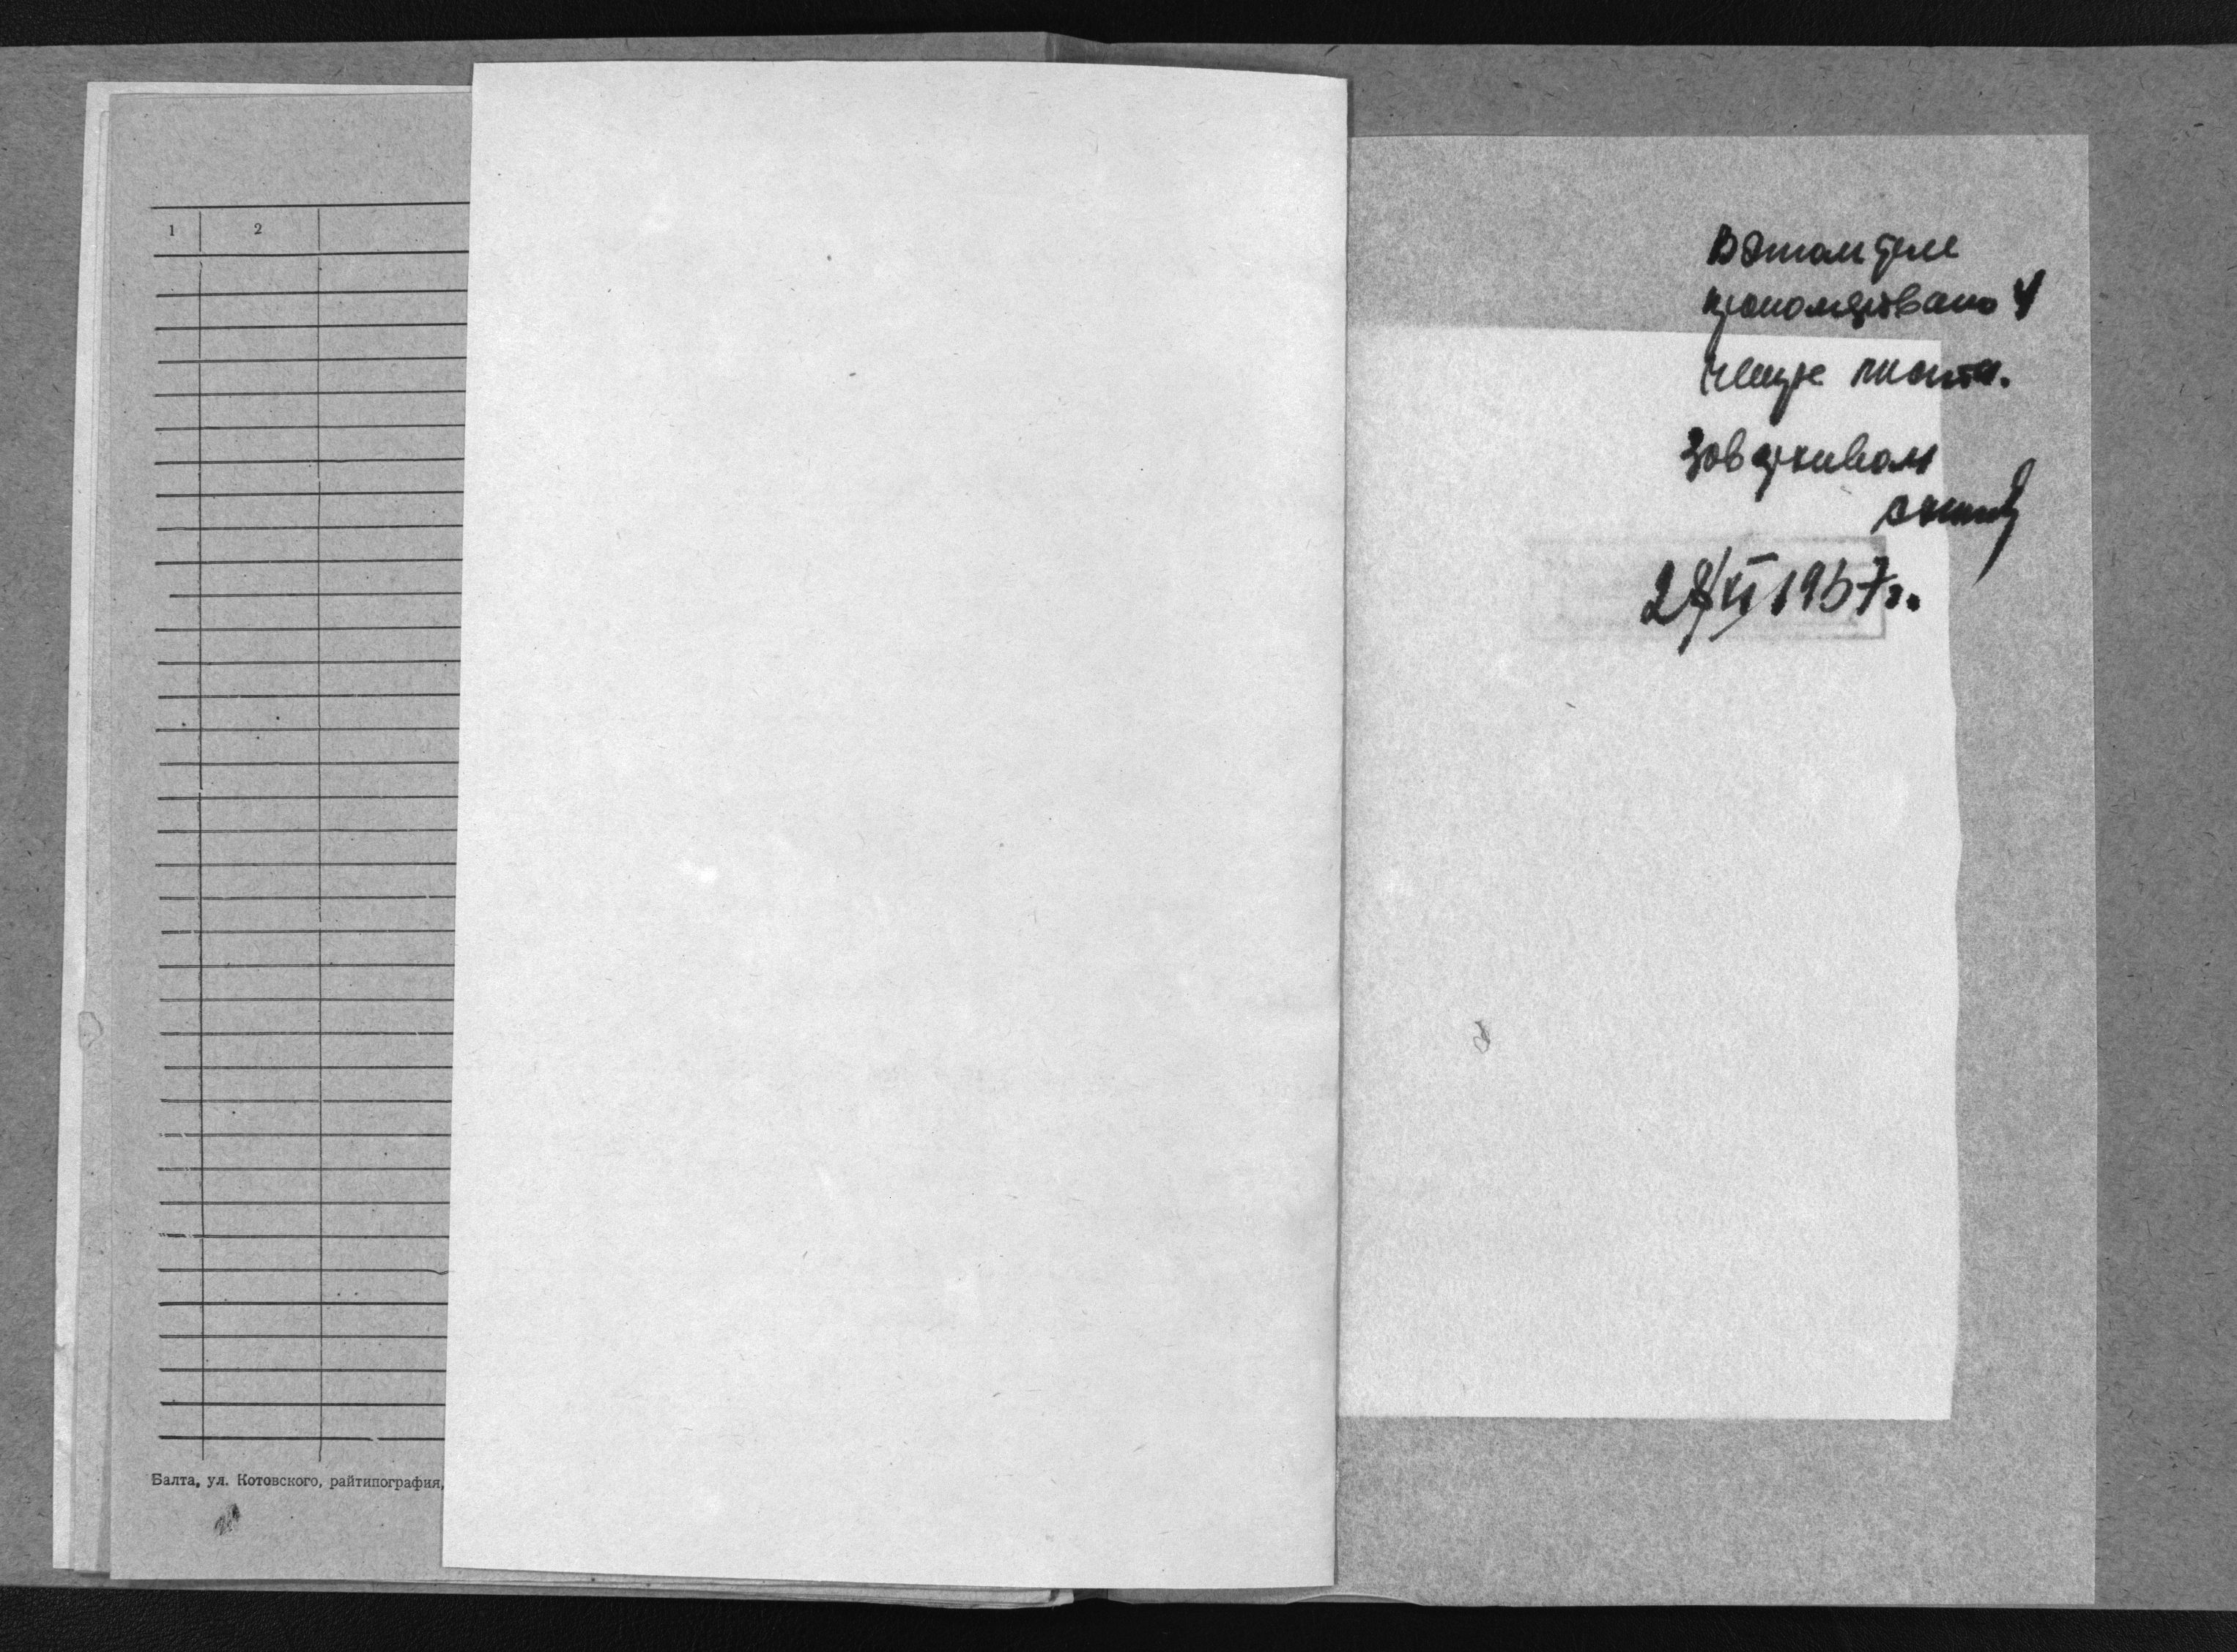 1 2
Балта, ул. Котовского, райтипография,
В этом деле
пронумеровано 4
четыре листа.
Зав архивом
XI 1957 г.